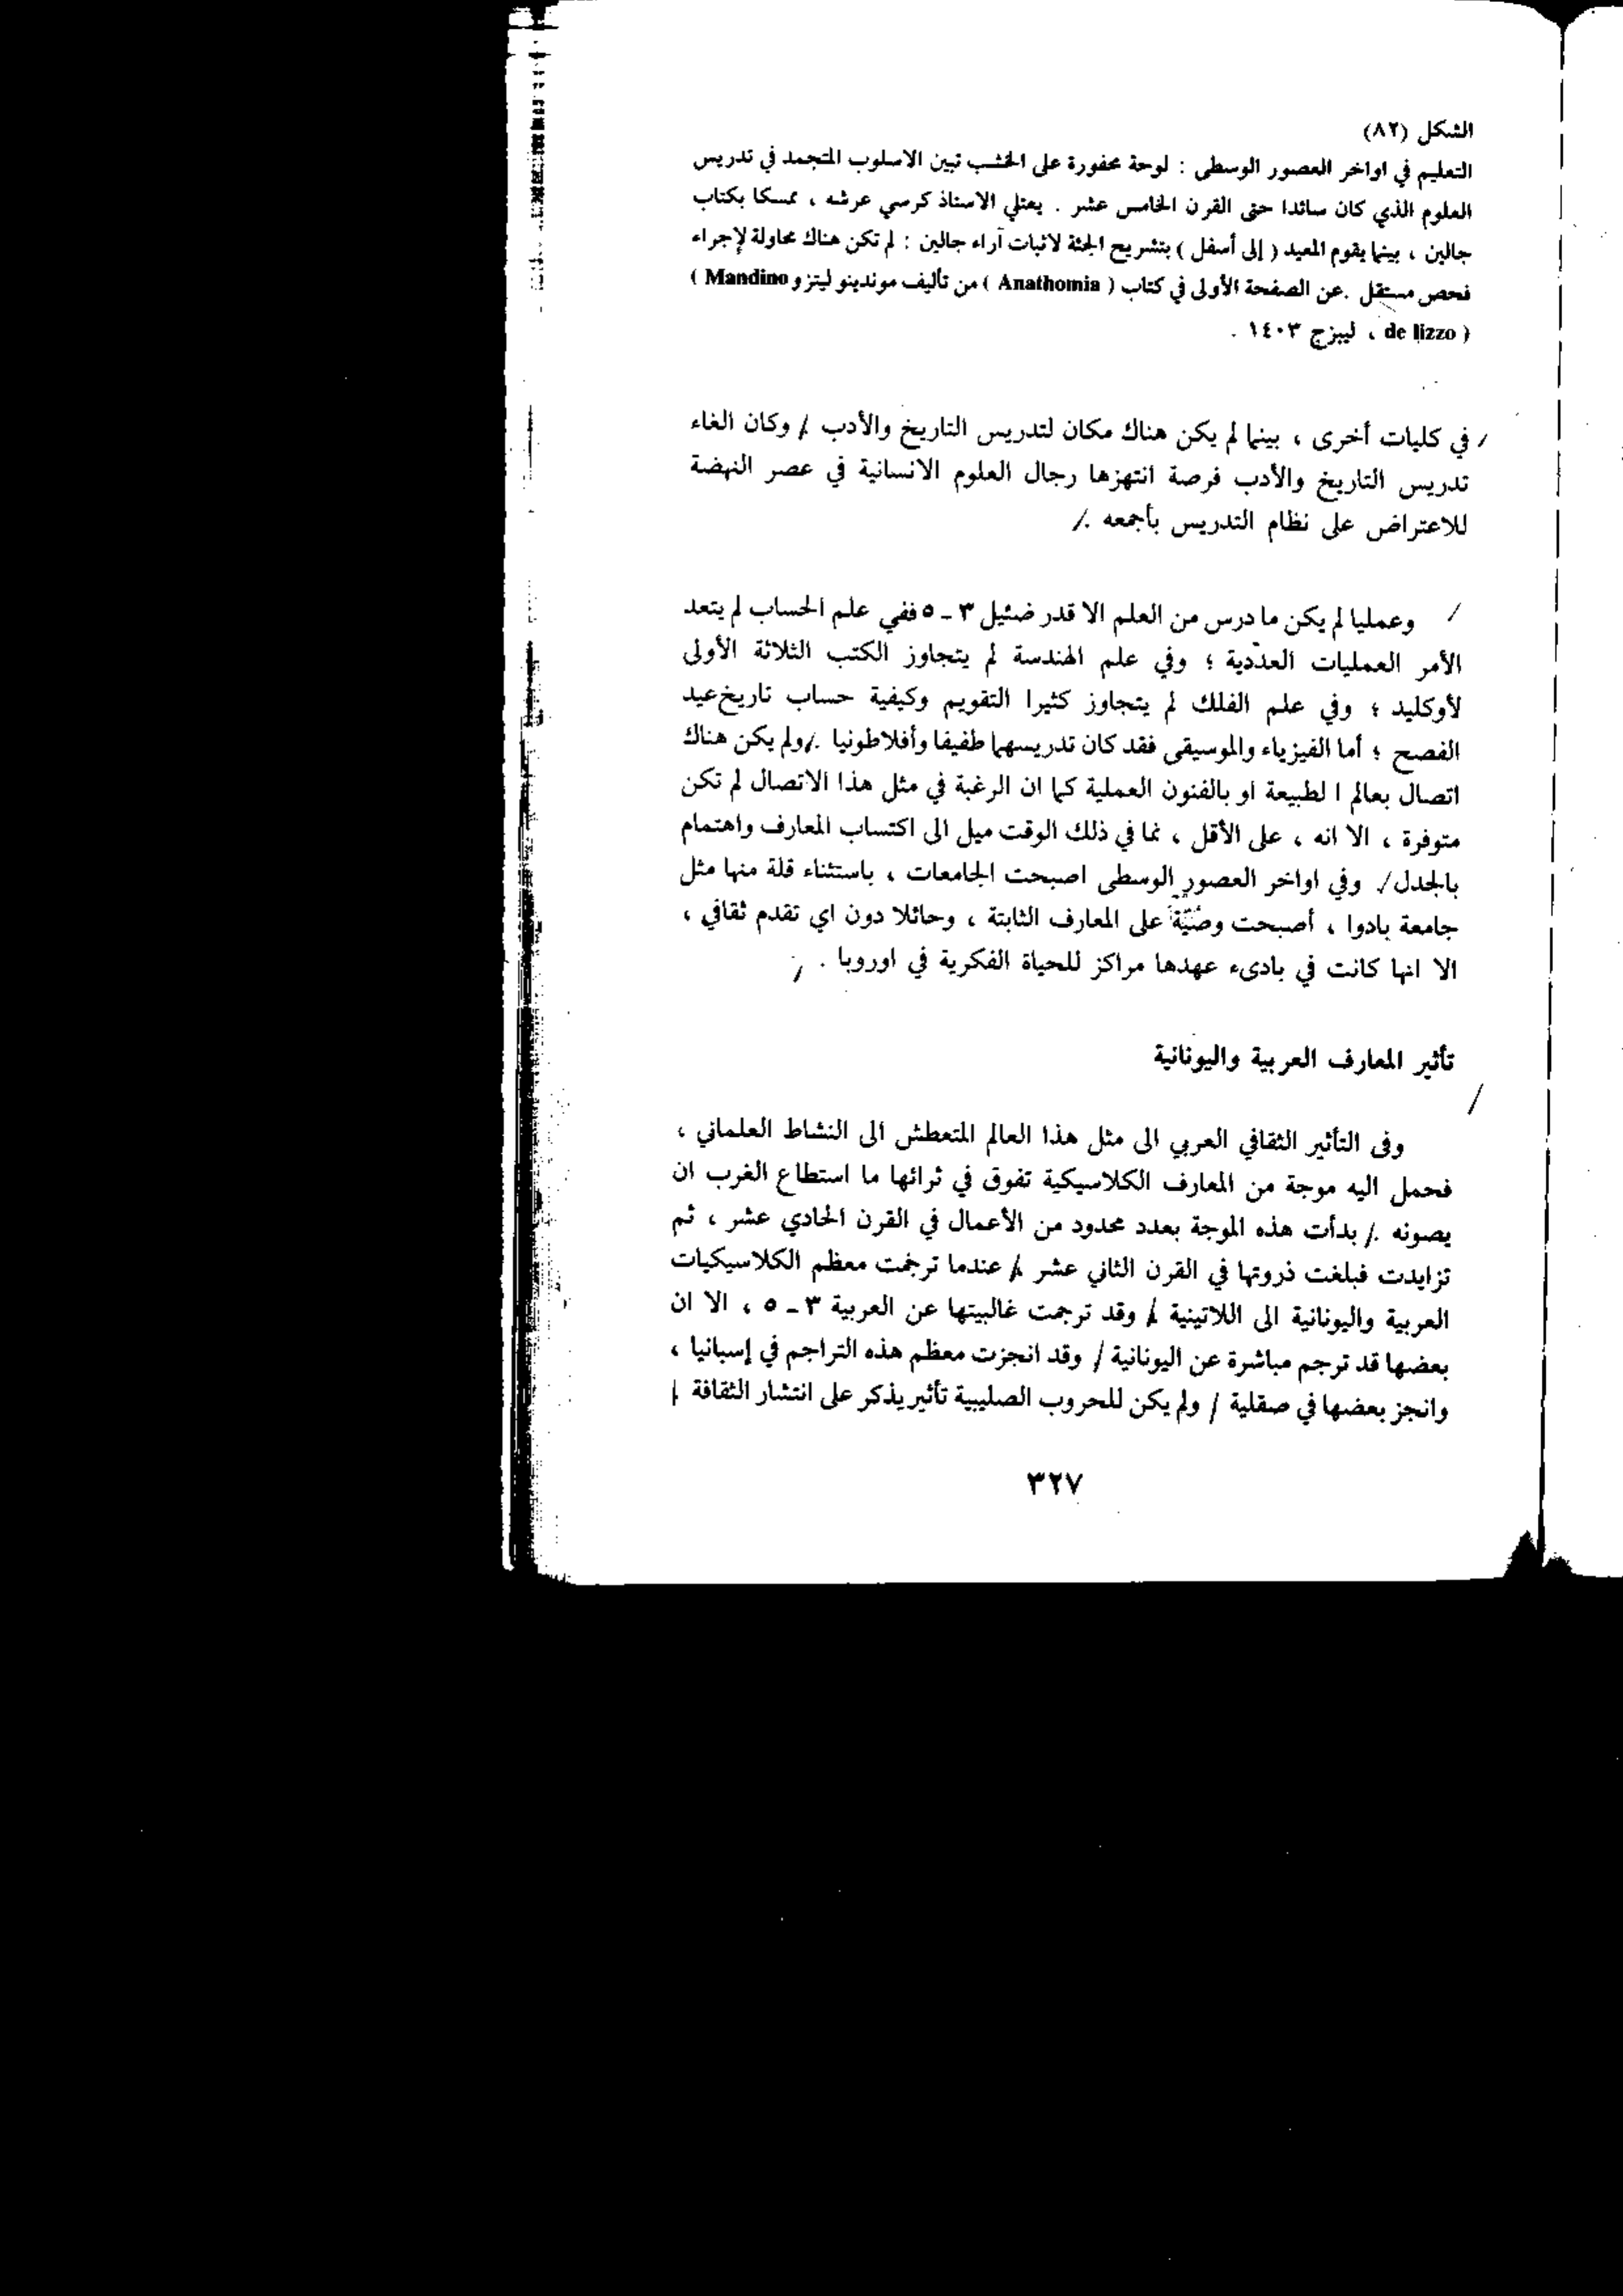 الشكل (٨٢)
التعليم في اواخر العصور الوسطى : لوحة محفورة على الخشب تبين الاسلوب المتجمد في تدريس
العلوم الذي كان سائدا حتى القرن الخامس عشر . يعتلي الاستاذ كرسي عرشه ، ممسكا بكتاب
جالين ، بينما يقوم المعيد ( إلى أسفل ) بتشريح الجثة لاثبات آراء جالين : لم تكن هناك محاولة لإجراء
فحص مستقل . عن الصفحة الأولى في كتاب ( Anathomia ) من تأليف موندينو ليتزو Mandino )
( de lizzo ، ليبزج ١٤٠٣ .
في كليات أخرى ، بينما لم يكن هناك مكان لتدريس التاريخ والأدب . وكان الغاء
تدريس التاريخ والأدب فرصة انتهزها رجال العلوم الانسانية في عصر النهضة
للاعتراض على نظام التدريس بأجمعه .
وعمليا لم يكن ما درس من العلم الا قدر ضئيل ٣ - ٥ ففي علم الحساب لم يتعد
الأمر العمليات العددية ؛ وفي علم الهندسة لم يتجاوز الكتب الثلاثة الأولى
لأوكليد ؛ وفي علم الفلك لم يتجاوز كثيرا التقويم وكيفية حساب تاريخ عيد
الفصح ؛ أما الفيزياء والموسيقى فقد كان تدريسهما طفيفا وأفلاطونيا . ولم يكن هناك
اتصال بعالم ا لطبيعة او بالفنون العملية كما ان الرغبة في مثل هذا الاتصال لم تكن
متوفرة ، الا انه ، على الأقل ، نما في ذلك الوقت ميل الى اكتساب المعارف واهتمام
بالجدل . وفي اواخر العصور الوسطى اصبحت الجامعات ، باستثناء قلة منها مثل
جامعة بادوا ، أصبحت وصيّة على المعارف الثابتة ، وحائلا دون اي تقدم ثقافي ،
الا انها كانت في بادىء عهدها مراكز للحياة الفكرية في اوروبا .
تأثير المعارف العربية واليونانية
وفى التأثير الثقافي العربي الى مثل هذا العالم المتعطش الى النشاط العلماني ،
فحمل اليه موجة من المعارف الكلاسيكية تفوق في ثرائها ما استطاع الغرب ان
يصونه . بدأت هذه الموجة بعدد محدود من الأعمال في القرن الحادي عشر ، ثم
تزايدت فبلغت ذروتها في القرن الثاني عشر ، عندما ترجمت معظم الكلاسيكيات
العربية واليونانية الى اللاتينية . وقد ترجمت غالبيتها عن العربية ٣ - ٥ ، الا ان
بعضها قد ترجم مباشرة عن اليونانية / وقد انجزت معظم هذه التراجم في إسبانيا ،
وانجز بعضها في صقلية / ولم يكن للحروب الصليبية تأثير يذكر على انتشار الثقافة
٣٢٧